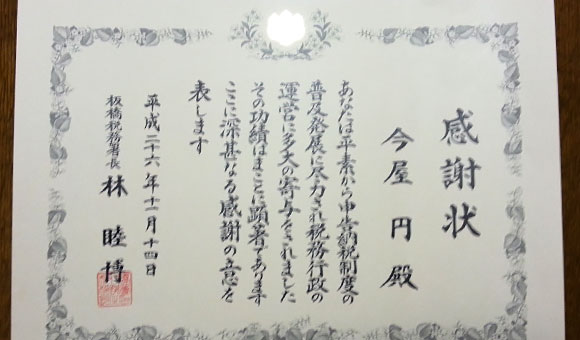 感謝状
今屋 円 殿
あなたは平素から申告納税制度の
普及発展に尽力され税務行政の
運営に多大の寄与をされました
その功績はまことに顕著であります
ここに深甚なる感謝の意を
表します
平成二十六年十一月十四日
板橋税務署長 林 睦博